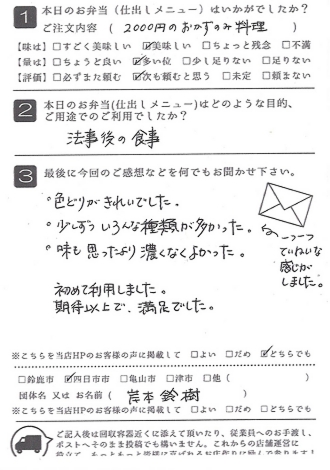 1 本日のお弁当(仕出しメニュー)はいかがでしたか?
ご注文内容 ( 2000円のおかずのみ料理 )
【味は】□すごく美味しい ☑美味しい □ちょっと残念 □不満
【量は】□ちょうど良い ☑多い位 □少し足りない □足りない
【評価】□必ずまた頼む ☑次も頼むと思う □未定 □頼まない
2 本日のお弁当(仕出しメニュー)はどのような目的、
ご用途でのご利用でしたか?
法事後の食事
3 最後に今回のご感想などを何でもお聞かせ下さい。
°色どりがきれいでした.
°少しずついろんな種類が多かった。
°味も思ったより濃くなくよかった。
一つ一つ
ていねいな
感じが
しました。
初めて利用しました。
期待以上で、満足でした。
※こちらを当店HPのお客様の声に掲載して □よい □だめ ☑どちらでも
□鈴鹿市 ☑四日市市 □亀山市 □津市 □他 ( )
団体名 又は お名前 ( 岸本 鈴樹 )
ご記入後は回収容器近くに添えて頂いたり、従業員へのお手渡し、
ポストへそのまま投稿でも構いません。これからの店舗運営に